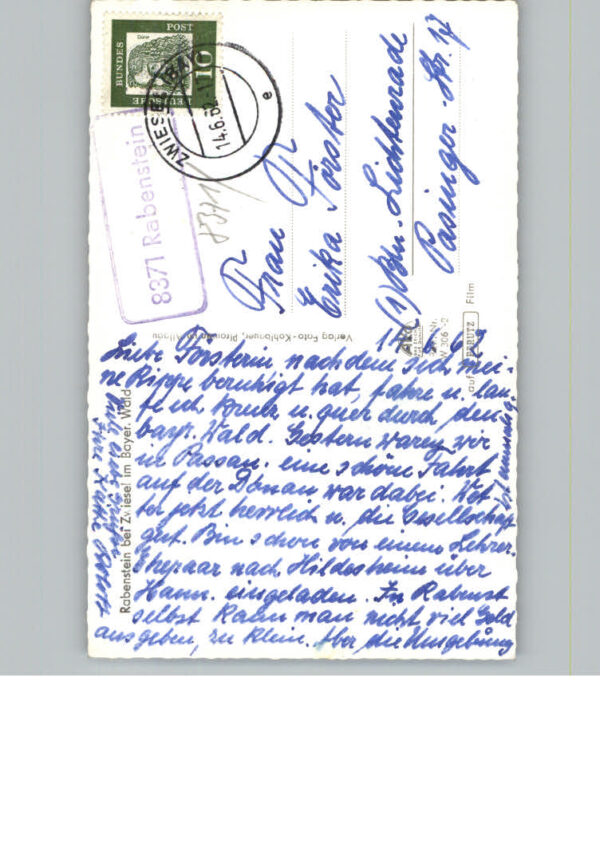 BUNDES
POST
DEUTSCHE
10
ZWIESEL (BAY
14.6.62-17
e
8371 Rabenstein
8371
Frau
Erika Förster
(1) Bln.-Lichtenrade
Pasinger-Str. 17
Verlag Foto-Kohlbauer,
auf PERUTZ Film
Rabenstein bei Zwiesel im Bayer. Wald
62
Liebe Försterin, nachdem sich mei-
ne Rippe beruhigt hat, fahre u. lau-
fe ich kreuz u. quer durch den
bayr. Wald. Gestern waren wir
in Passau. eine schöne Fahrt
auf der Donau war dabei. Wet-
ter jetzt herrlich u. die Gesellschaft
gut. Bin schon von einem Lehrer-
Ehepaar nach Hildesheim über
Hann. eingeladen. In Rabenst
selbst kann man nicht viel Geld
ausgeben, zu klein. Aber die Umgebung
ist